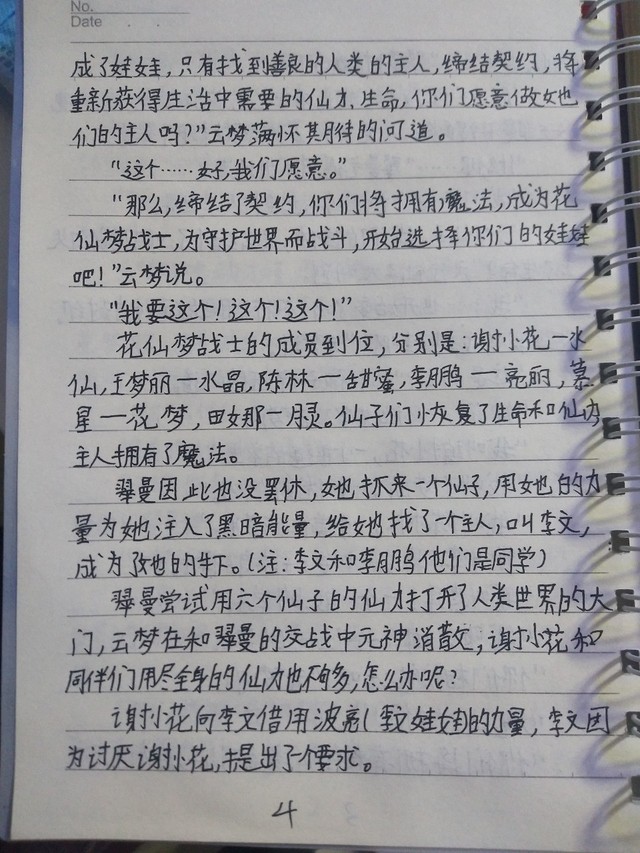 No.
Date
成了娃娃，只有找到善良的人类的主人，缔结契约，将
重新获得生活中需要的仙力，生命，你们愿意做她
们的主人吗？”云梦满怀其月待的问道。
“这个……好，我们愿意。”
“那么，缔结了契约，你们将拥有魔法，成为花
仙梦战士，为守护世界而战斗，开始选择你们的娃娃
吧！”云梦说。
“我要这个！这个！这个！”
花仙梦战士的成员到位，分别是：谢小花—水
仙，王梦丽—水晶，陈林—甜蜜，李鹏—亮丽，慕
星—花梦，田女那—月灵。仙子们恢复了生命和仙力
主人拥有了魔法。
翠曼因此也没罢休，她抓来一个仙子，用她的力
量为她注入了黑暗能量，给她找了一个主人，叫李文，
成为了她的手下。（注：李文和李月鹏他们是同学）
翠曼尝试用六个仙子的仙力打开了人类世界的大
门，云梦在和翠曼的交战中元神消散，谢小花和
同伴们用尽全身的仙力也不够多，怎么办呢？
谢小花向李文借用波亮（李文娃娃）的力量，李文因
为讨厌谢小花，提出了个要求。
4